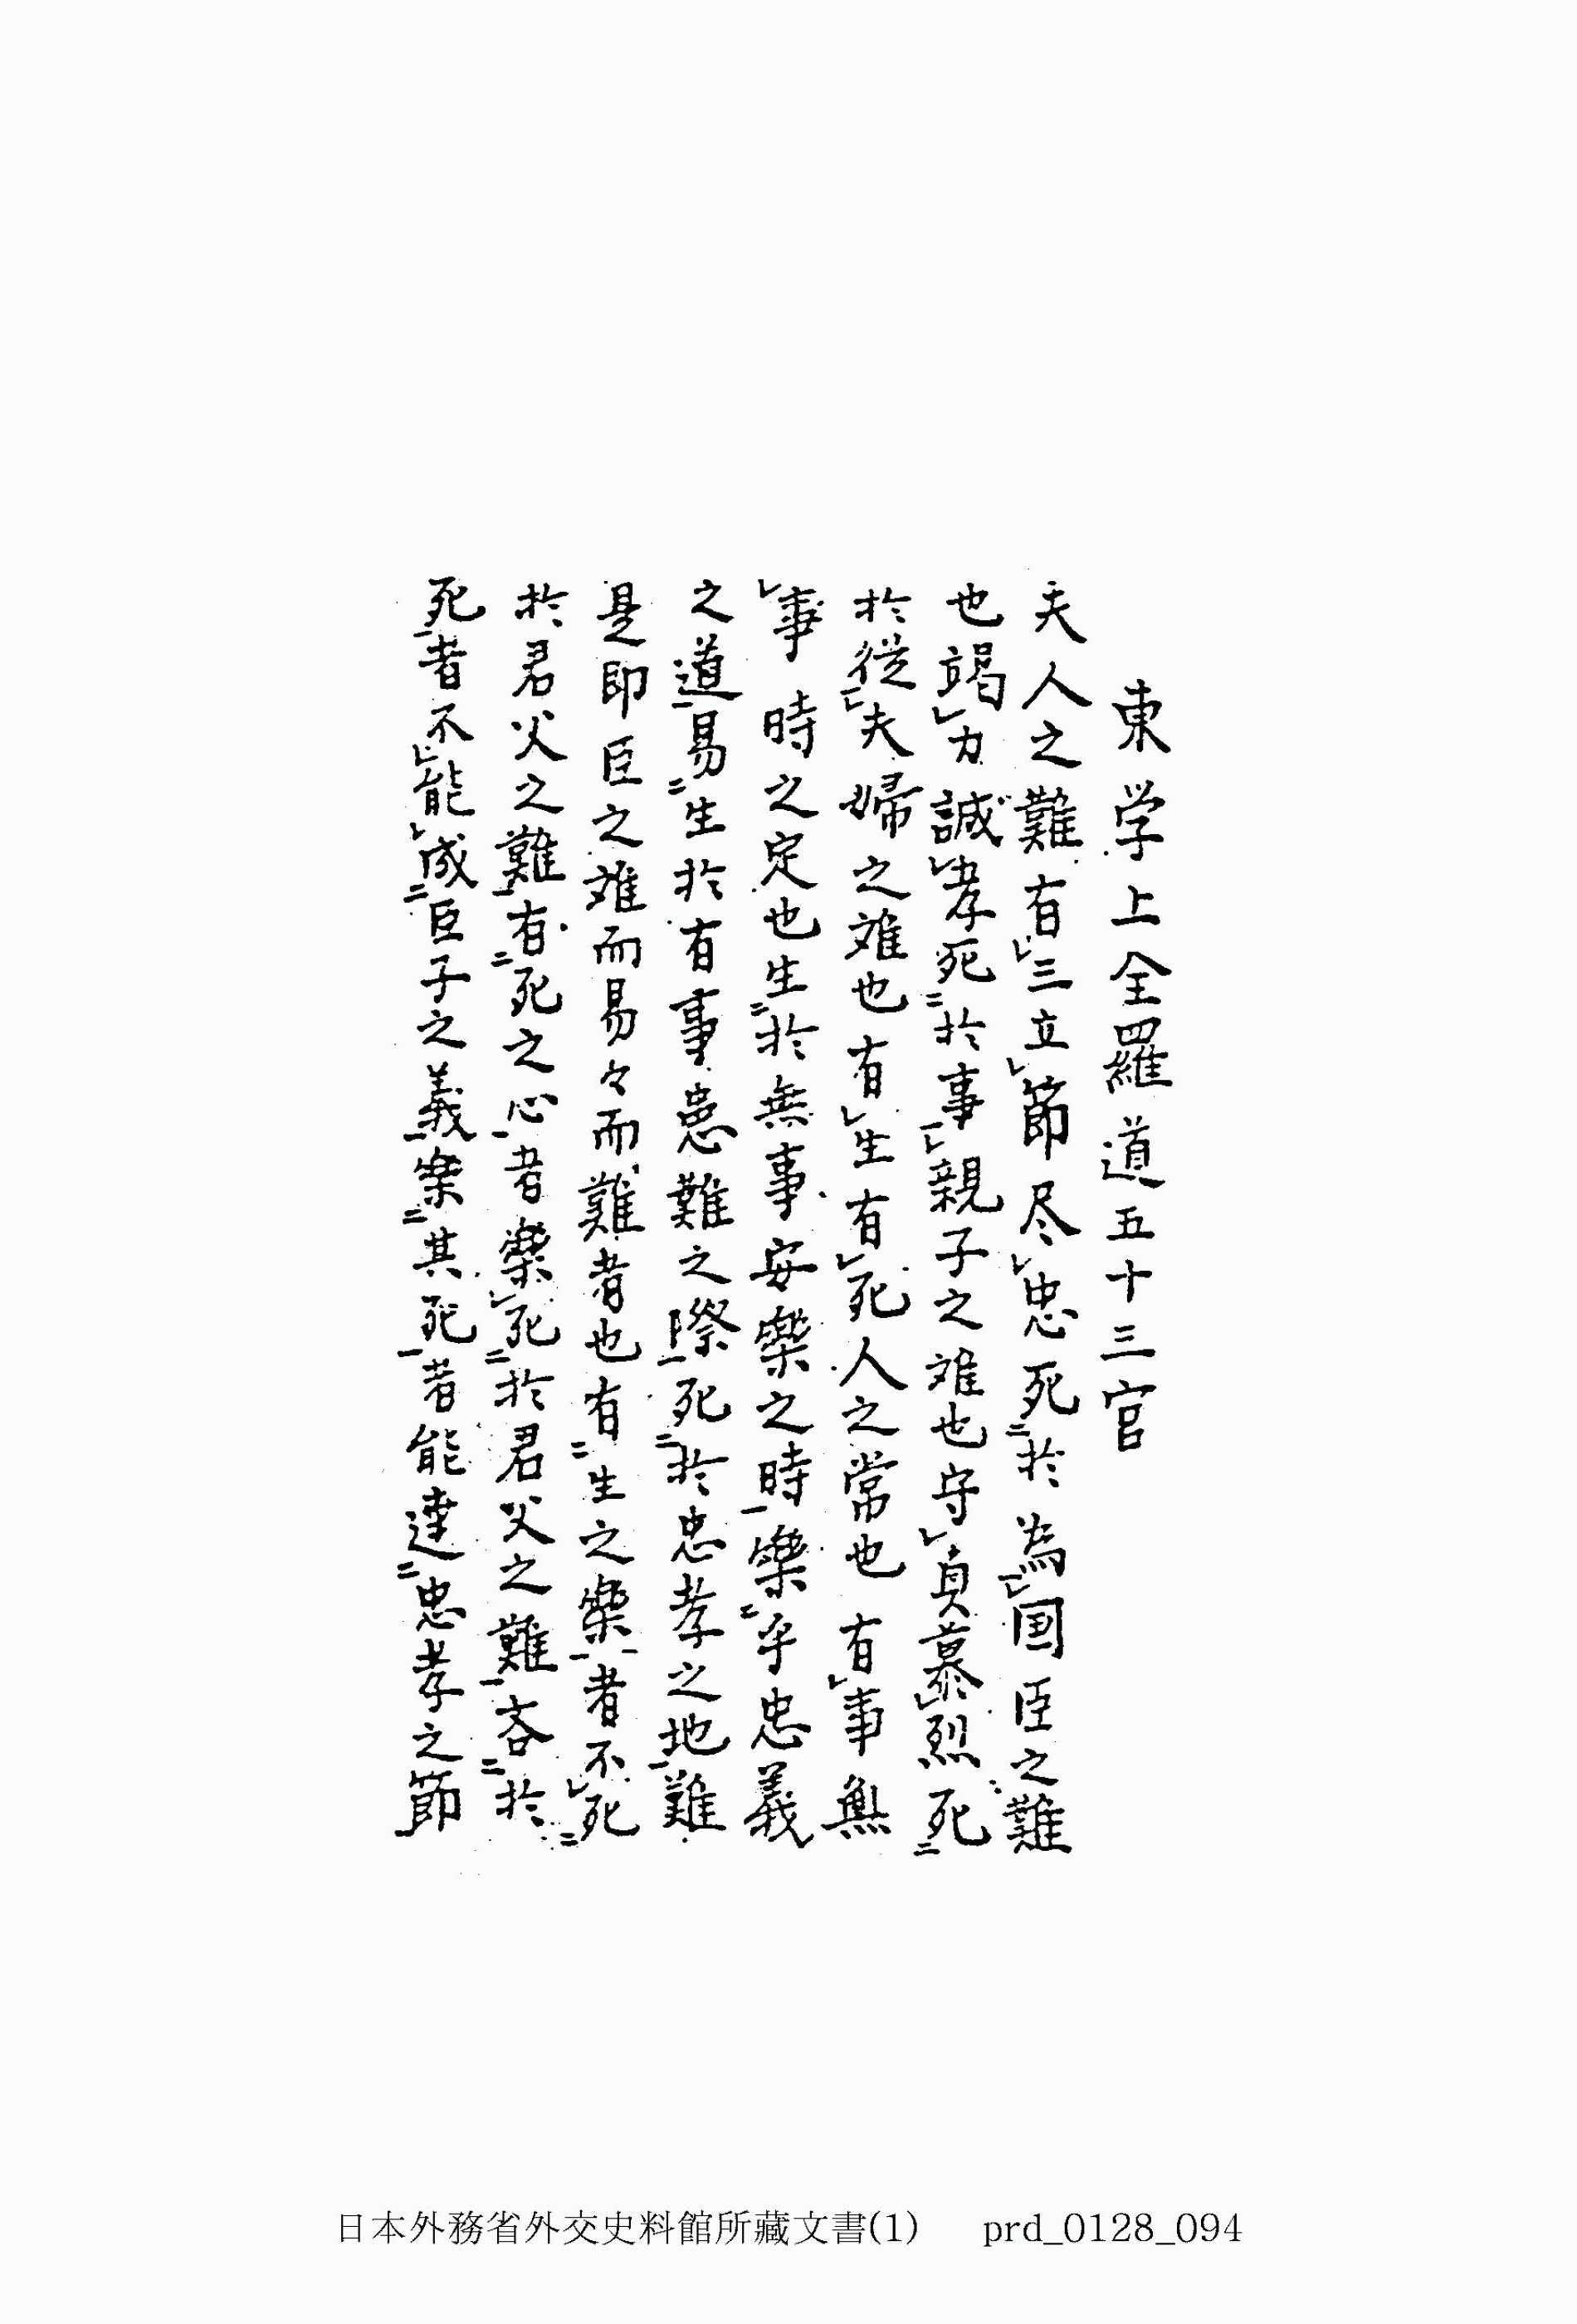 東学上全羅道五十三官
夫人之難有三立節尽忠死於為国臣之難
也竭力誠孝死於事親子之难也守貞慕烈死
於従夫婦之难也有生有死人之常也有事無
事時之定也生於無事安樂之時楽乎忠義
之道易生於有事患難之際死於忠孝之地難
是即臣之难而易々而難者也有生之楽者不死
於君父之難有死之心者楽死於君父之難吝於
死者不能成臣子之義楽其死者能達忠孝之節
日本外務省外交史料館所藏文書(1) prd_0128_094